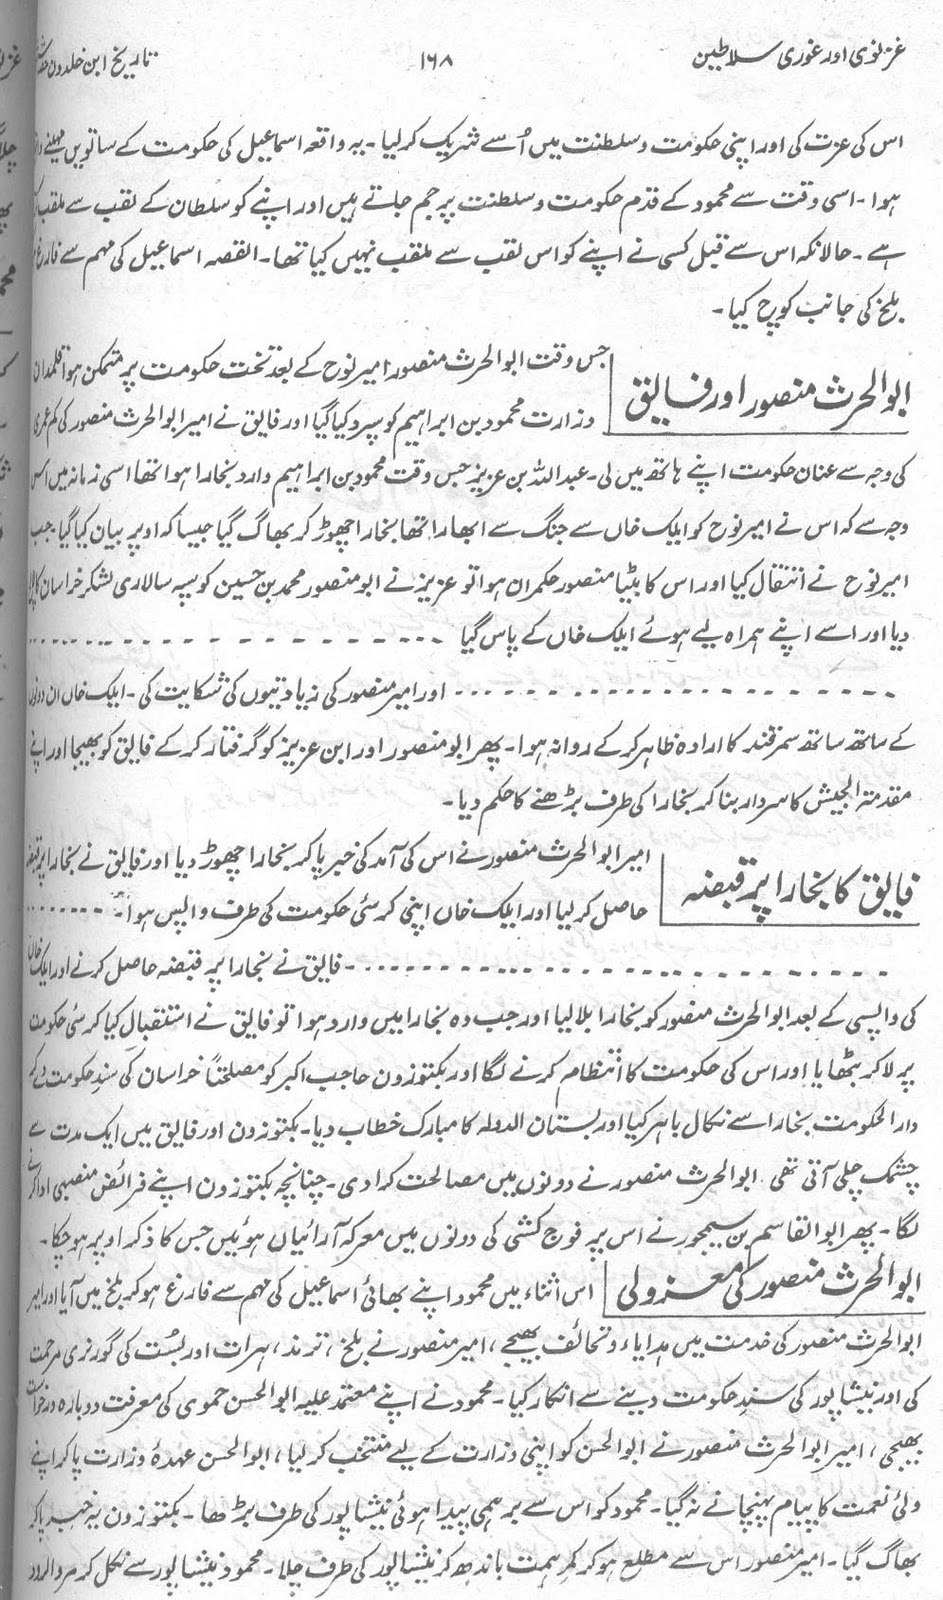 غزنوی اور غوری سلاطین
۱۶۸
تاریخ ابن خلدون
اس کی عزت کی اور اپنی حکومت و سلطنت میں اُسے شریک کر لیا۔ یہ واقعہ اسماعیل کی حکومت کے ساتویں مہینے
ہوا۔ اسی وقت سے محمود کے قدم حکومت و سلطنت پر جم جاتے ہیں اور اپنے کو سلطان کے لقب سے ملقب
ہے۔ حالانکہ اس سے قبل کسی نے اپنے کو اس لقب سے ملقب نہیں کیا تھا۔ القصہ اسماعیل کی مہم سے فارغ
بلخ کی جانب کوچ کیا۔
ابو الحرث منصور اور فایق
جس وقت ابو الحرث منصور امیر نوح کے بعد تخت حکومت پر متمکن ہوا قلمدان
وزارت محمود بن ابراہیم کو سپرد کیا گیا اور فایق نے امیر ابو الحرث منصور کی کم عمری
کی وجہ سے عنان حکومت اپنے ہاتھ میں لی۔ عبد اللہ بن عزیز جس وقت محمود بن ابراہیم وارد بخارا ہوا تھا اسی زمانہ میں اس
وجہ سے کہ اس نے امیر نوح کو ایلک خاں سے جنگ سے ابھارا تھا بخارا چھوڑ کر بھاگ گیا جیسا کہ اوپر بیان کیا گیا۔ جب
امیر نوح نے انتقال کیا اور اس کا بیٹا منصور حکمران ہوا تو عزیز نے ابو منصور محمد بن حسین کو سپہ سالاری لشکر خراسان کا
دیا اور اسے اپنے ہمراہ لیے ہوئے ایلک خاں کے پاس گیا ۔۔۔۔۔۔۔۔۔۔۔۔۔۔۔۔۔۔
۔۔۔۔۔۔۔۔۔۔۔۔۔۔۔۔۔۔۔۔ اور امیر منصور کی زیادتیوں کی شکایت کی۔ ایلک خاں ان دونوں
کے ساتھ ساتھ سمرقند کا ارادہ ظاہر کر کے روانہ ہوا۔ پھر ابو منصور اور ابن عزیز کو گرفتار کر کے فایق کو بھیجا اور اپنے
مقدمۃ الجیش کا سردار بنا کر بخارا کی طرف بڑھنے کا حکم دیا۔
فایق کا بخارا پر قبضہ
امیر ابو الحرث منصور نے اس کی آمد کی خبر پا کر بخارا چھوڑ دیا اور فایق نے بخارا پر قبضہ
حاصل کر لیا اور ایلک خاں اپنی کرسئی حکومت کی طرف واپس ہوا۔ ۔۔۔۔۔۔۔
۔۔۔۔۔۔۔۔۔۔۔۔۔۔۔۔۔۔۔۔۔۔ فایق نے بخارا پر قبضہ حاصل کرنے اور ایلک خاں
کی واپسی کے بعد ابو الحرث منصور کو بخارا بلا لیا اور جب وہ بخارا میں وارد ہوا تو فایق نے استقبال کیا کرسئی حکومت
پر لا کر بٹھایا اور اس کی حکومت کا انتظام کرنے لگا اور بکتوزون حاجب اکبر کو مصلحتاً خراسان کی سند حکومت دے کر
دار الحکومت بخارا سے نکال باہر کیا اور بستان الدولہ کا مبارک خطاب دیا۔ بکتوزون اور فایق میں ایک مدت سے
چشمک چلی آتی تھی۔ ابو الحرث منصور نے دونوں میں مصالحت کرا دی۔ چنانچہ بکتوزون اپنے فرائض منصبی ادا کرنے
لگا۔ پھر ابو القاسم بن سیمجور نے اس پر فوج کشی کی دونوں میں معرکہ آرائیاں ہوئیں جس کا ذکر اوپر ہو چکا۔
ابو الحرث منصور کی معزولی
اس اثناء میں محمود اپنے بھائی اسماعیل کی مہم سے فارغ ہو کر بلخ میں آیا اور امیر
ابو الحرث منصور کی خدمت میں ہدایاء و تحائف بھیجے، امیر منصور نے بلخ، ترمذ، ہرات اور بُست کی گورنری مرحمت
کی اور نیشاپور کی سند حکومت دینے سے انکار کیا۔ محمود نے اپنے معتمد علیہ ابو الحسن حموی کی معرفت دوبارہ درخواست
بھیجی، امیر ابو الحرث منصور نے ابو الحسن کو اپنی وزارت کے لیے منتخب کر لیا، ابو الحسن عہدۂ وزارت پا کر اپنے
ولئ نعمت کا پیام پہنچانے نہ گیا۔ محمود کو اس سے برہمی پیدا ہوئی نیشاپور کی طرف بڑھا۔ بکتوزون یہ خبر پا کر
بھاگ گیا۔ امیر منصور اس سے مطلع ہو کر کمر ہمت باندھ کر نیشاپور کی طرف چلا۔ محمود نیشاپور سے نکل کر مرو الرود